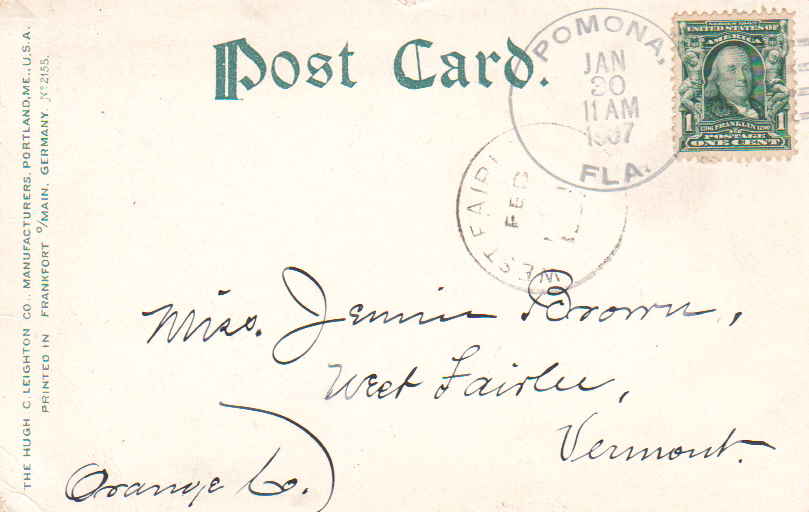 Post Card.
POMONA,
JAN
30
11 AM
1907
FLA.
UNITED STATES OF
AMERICA
1706 FRANKLIN 1790
POSTAGE
1 ONE CENT 1
WEST FAIRL
FEB
Miss. Jennie Brown,
West Fairlee,
Vermont.
Orange Co.
THE HUGH C. LEIGHTON CO., MANUFACTURERS, PORTLAND, ME., U.S.A.
PRINTED IN FRANKFORT O/MAIN, GERMANY. No 2155.